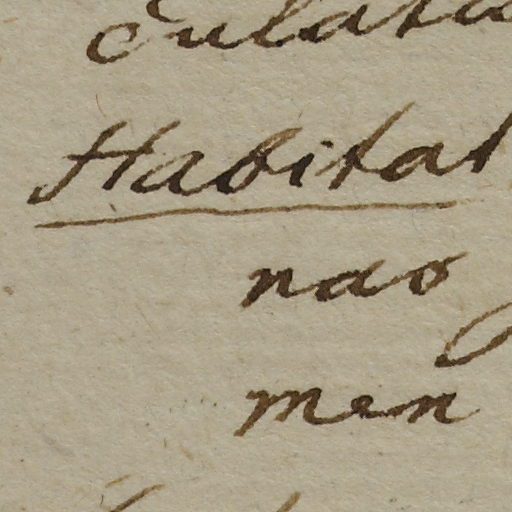 culata
Habitat
nas
men